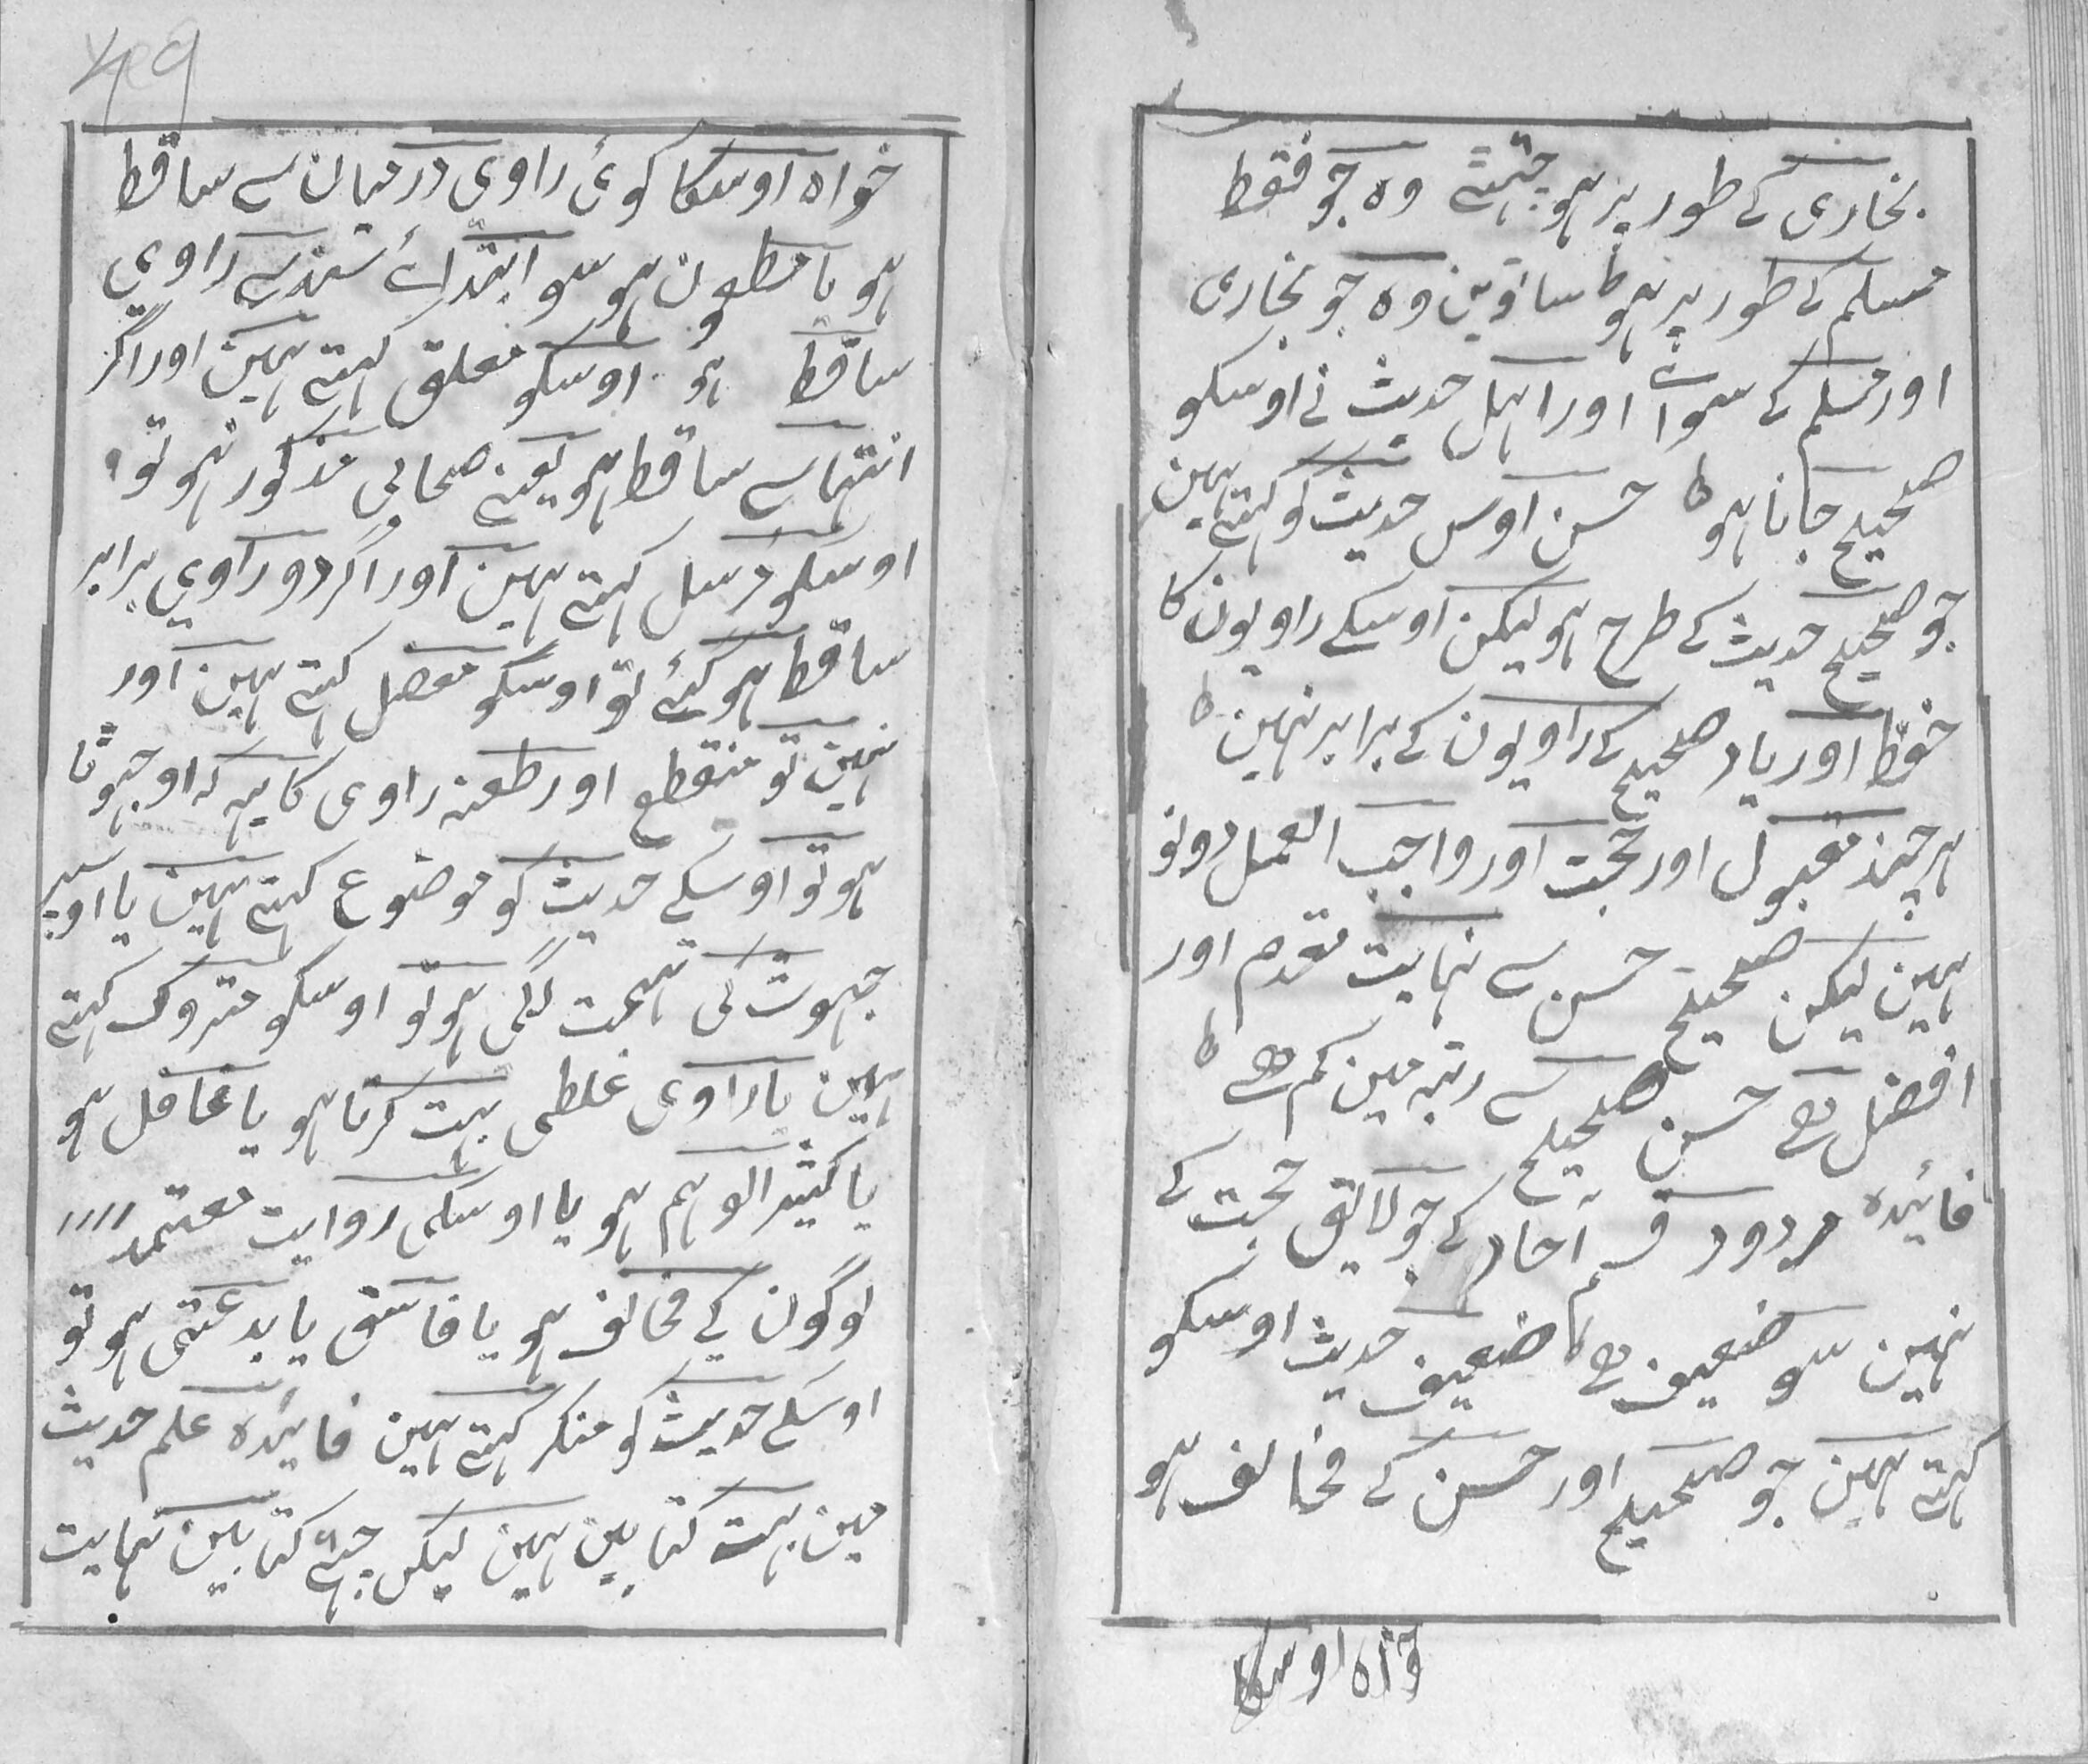 بخاری کے طور پر ہو چہتے وہ جو فقط
مسلم کے طور پر ہو ساتوین وہ جو بخاری
اور مسلم کے سوائے اور اہل حدیث نے اوسکو
صحیح جانا ہو حسن اوس حدیث کو کہتے ہین
جو صحیح حدیث کے طرح ہو لیکن اوسکے راویون کا
حفظ اور یاد صحیح کے راویون کے برابر نہین
ہر چند مقبول اور حجت اور واجب العمل دونو
ہین لیکن صحیح حسن سے نہایت مقدم اور
افضل ہے حسن صحیح سے رتبہ مین کم ہے
فائدہ مردود قسم آحاد کے جو لایق حجت کے
نہین سو ضعیف ہے ضعیف حدیث اوسکو
کہتے ہین جو صحیح اور حسن کے مخالف ہو
خواہ اوسکا
49
خواہ اوسکا کوئی راوی درمیان سے ساقط
ہو یا مطعون ہو سو ابتدائے سند سے راوی
ساقط ہو اوسکو معلق کہتے ہین اور اگر
انتہا سے ساقط ہو یعنے صحابی مذکور نہو تو
اوسکو مرسل کہتے ہین اور اگر دو راوی برابر
ساقط ہو گئے تو اوسکو معضل کہتے ہین اور
نہین تو منقطع اور طعنہ راوی کا یہہ کہ او جہوٹا
ہو تو اوسکے حدیث کو موضوع کہتے ہین یا اوپر
جہوٹ کی تہمت لگی ہو تو اوسکو متروک کہتے
ہین یا راوی غلطی بہت کرتا ہو یا غافل ہو
یا کثیر الوہم ہو یا اوسکی روایت معتمد
لوگون کے مخالف ہو یا فاسق یا بدعتی ہو تو
اوسکے حدیث کو منکر کہتے ہین فائدہ علم حدیث
مین بہت کتابین ہین لیکن چہے کتابین نہایت